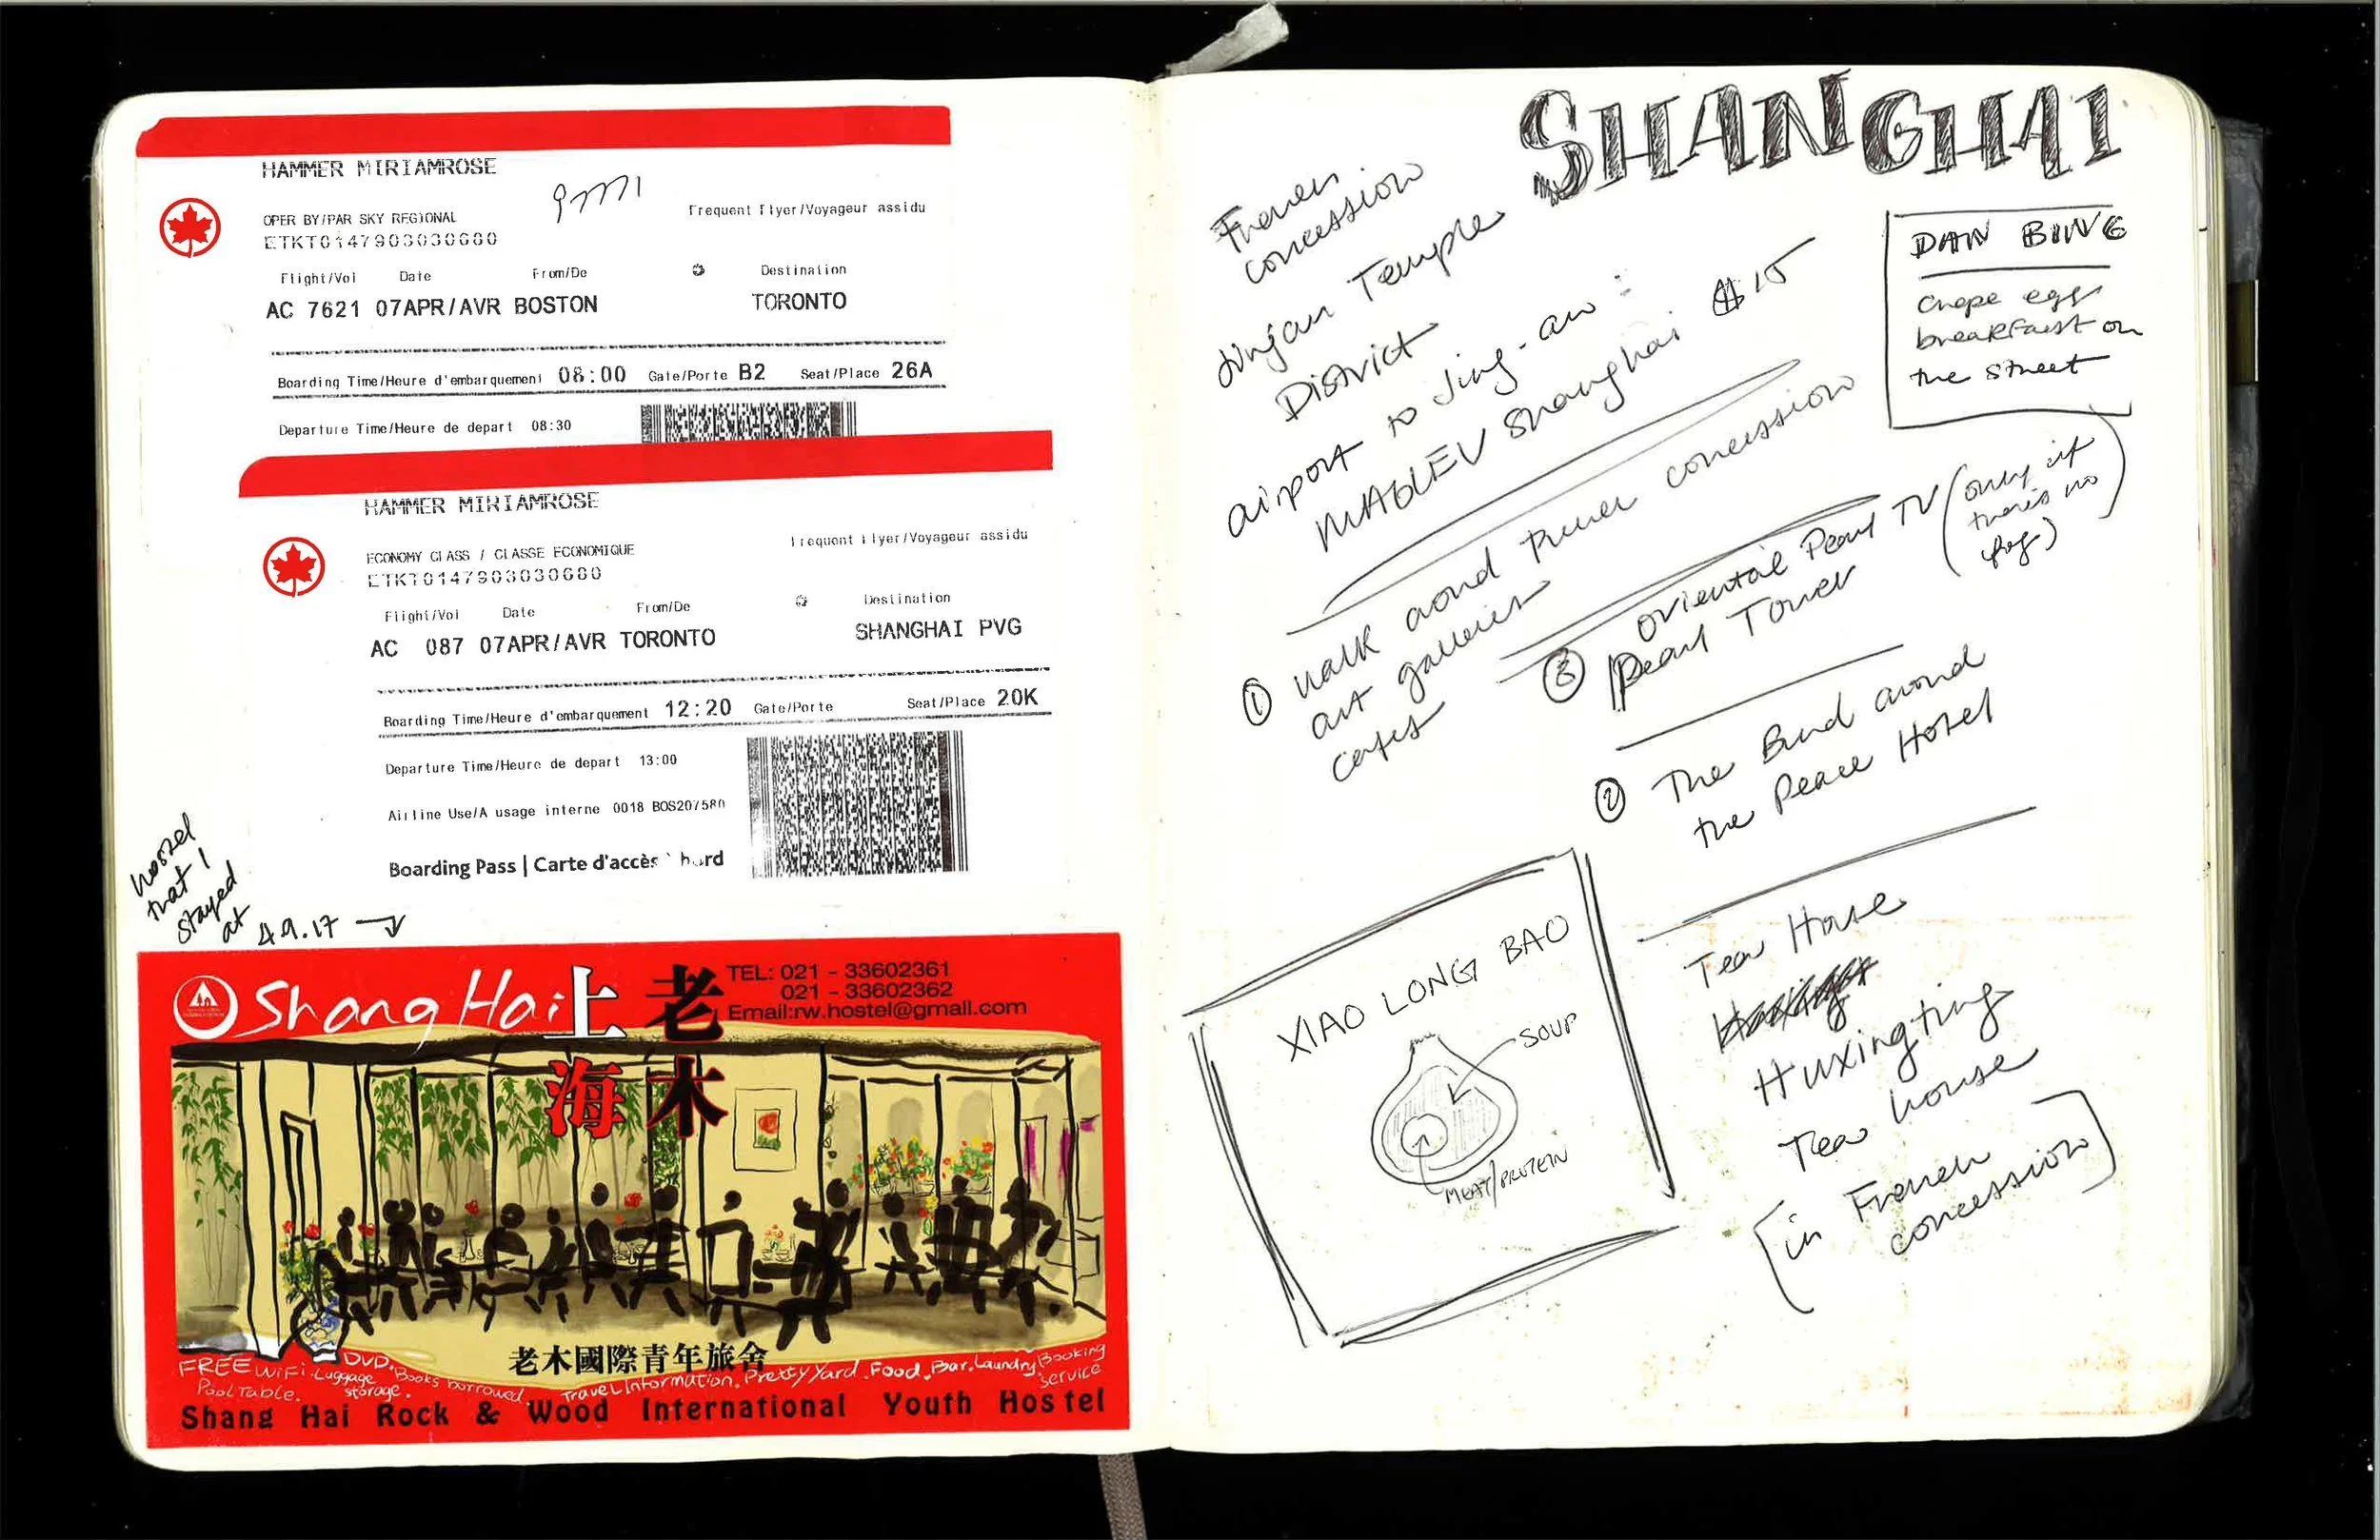 HAMMER MIRIAMROSE
OPER BY/PAR SKY REGIONAL
Frequent Flyer/Voyageur assidu
ETKT0147903030680
Flight/Vol Date From/De Destination
AC 7621 07APR/AVR BOSTON TORONTO
Boarding Time/Heure d'embarquement 08:00 Gate/Porte B2 Seat/Place 26A
Departure Time/Heure de depart 08:30
HAMMER MIRIAMROSE
ECONOMY CLASS / CLASSE ECONOMIQUE
Frequent Flyer/Voyageur assidu
ETKT0147903030680
Flight/Vol Date From/De Destination
AC 087 07APR/AVR TORONTO SHANGHAI PVG
Boarding Time/Heure d'embarquement 12:20 Gate/Porte Seat/Place 20K
Departure Time/Heure de depart 13:00
Airline Use/A usage interne 0018 BOS207580
Boarding Pass | Carte d'accès bord
hostel
that I
stayed
at 4.9.17
Shang Hai
上海
老木
TEL: 021 - 33602361
021 - 33602362
Email:rw.hostel@gmail.com
老木國際青年旅舍
FREE WiFi. Luggage storage. DVD. Books borrowed. Travel Information. Pretty Yard. Food. Bar. Laundry Booking service
Pool Table.
Shang Hai Rock & Wood International Youth Hostel
SHANGHAI
French
concession
Jingan Temple
District
airport to Jing-an:
MAGLEV Shanghai $15
DAN BING
crepe egg
breakfast on
the street
① walk aond French concession
art galleries
cafes
③ oriental Pearl TV (only if
there's no
fog)
Pearl Tower
② The Bund around
the Peace Hotel
Tea House
Huxingting
Tea house
[in French
concession]
XIAO LONG BAO
SOUP
MEAT/PROTEIN